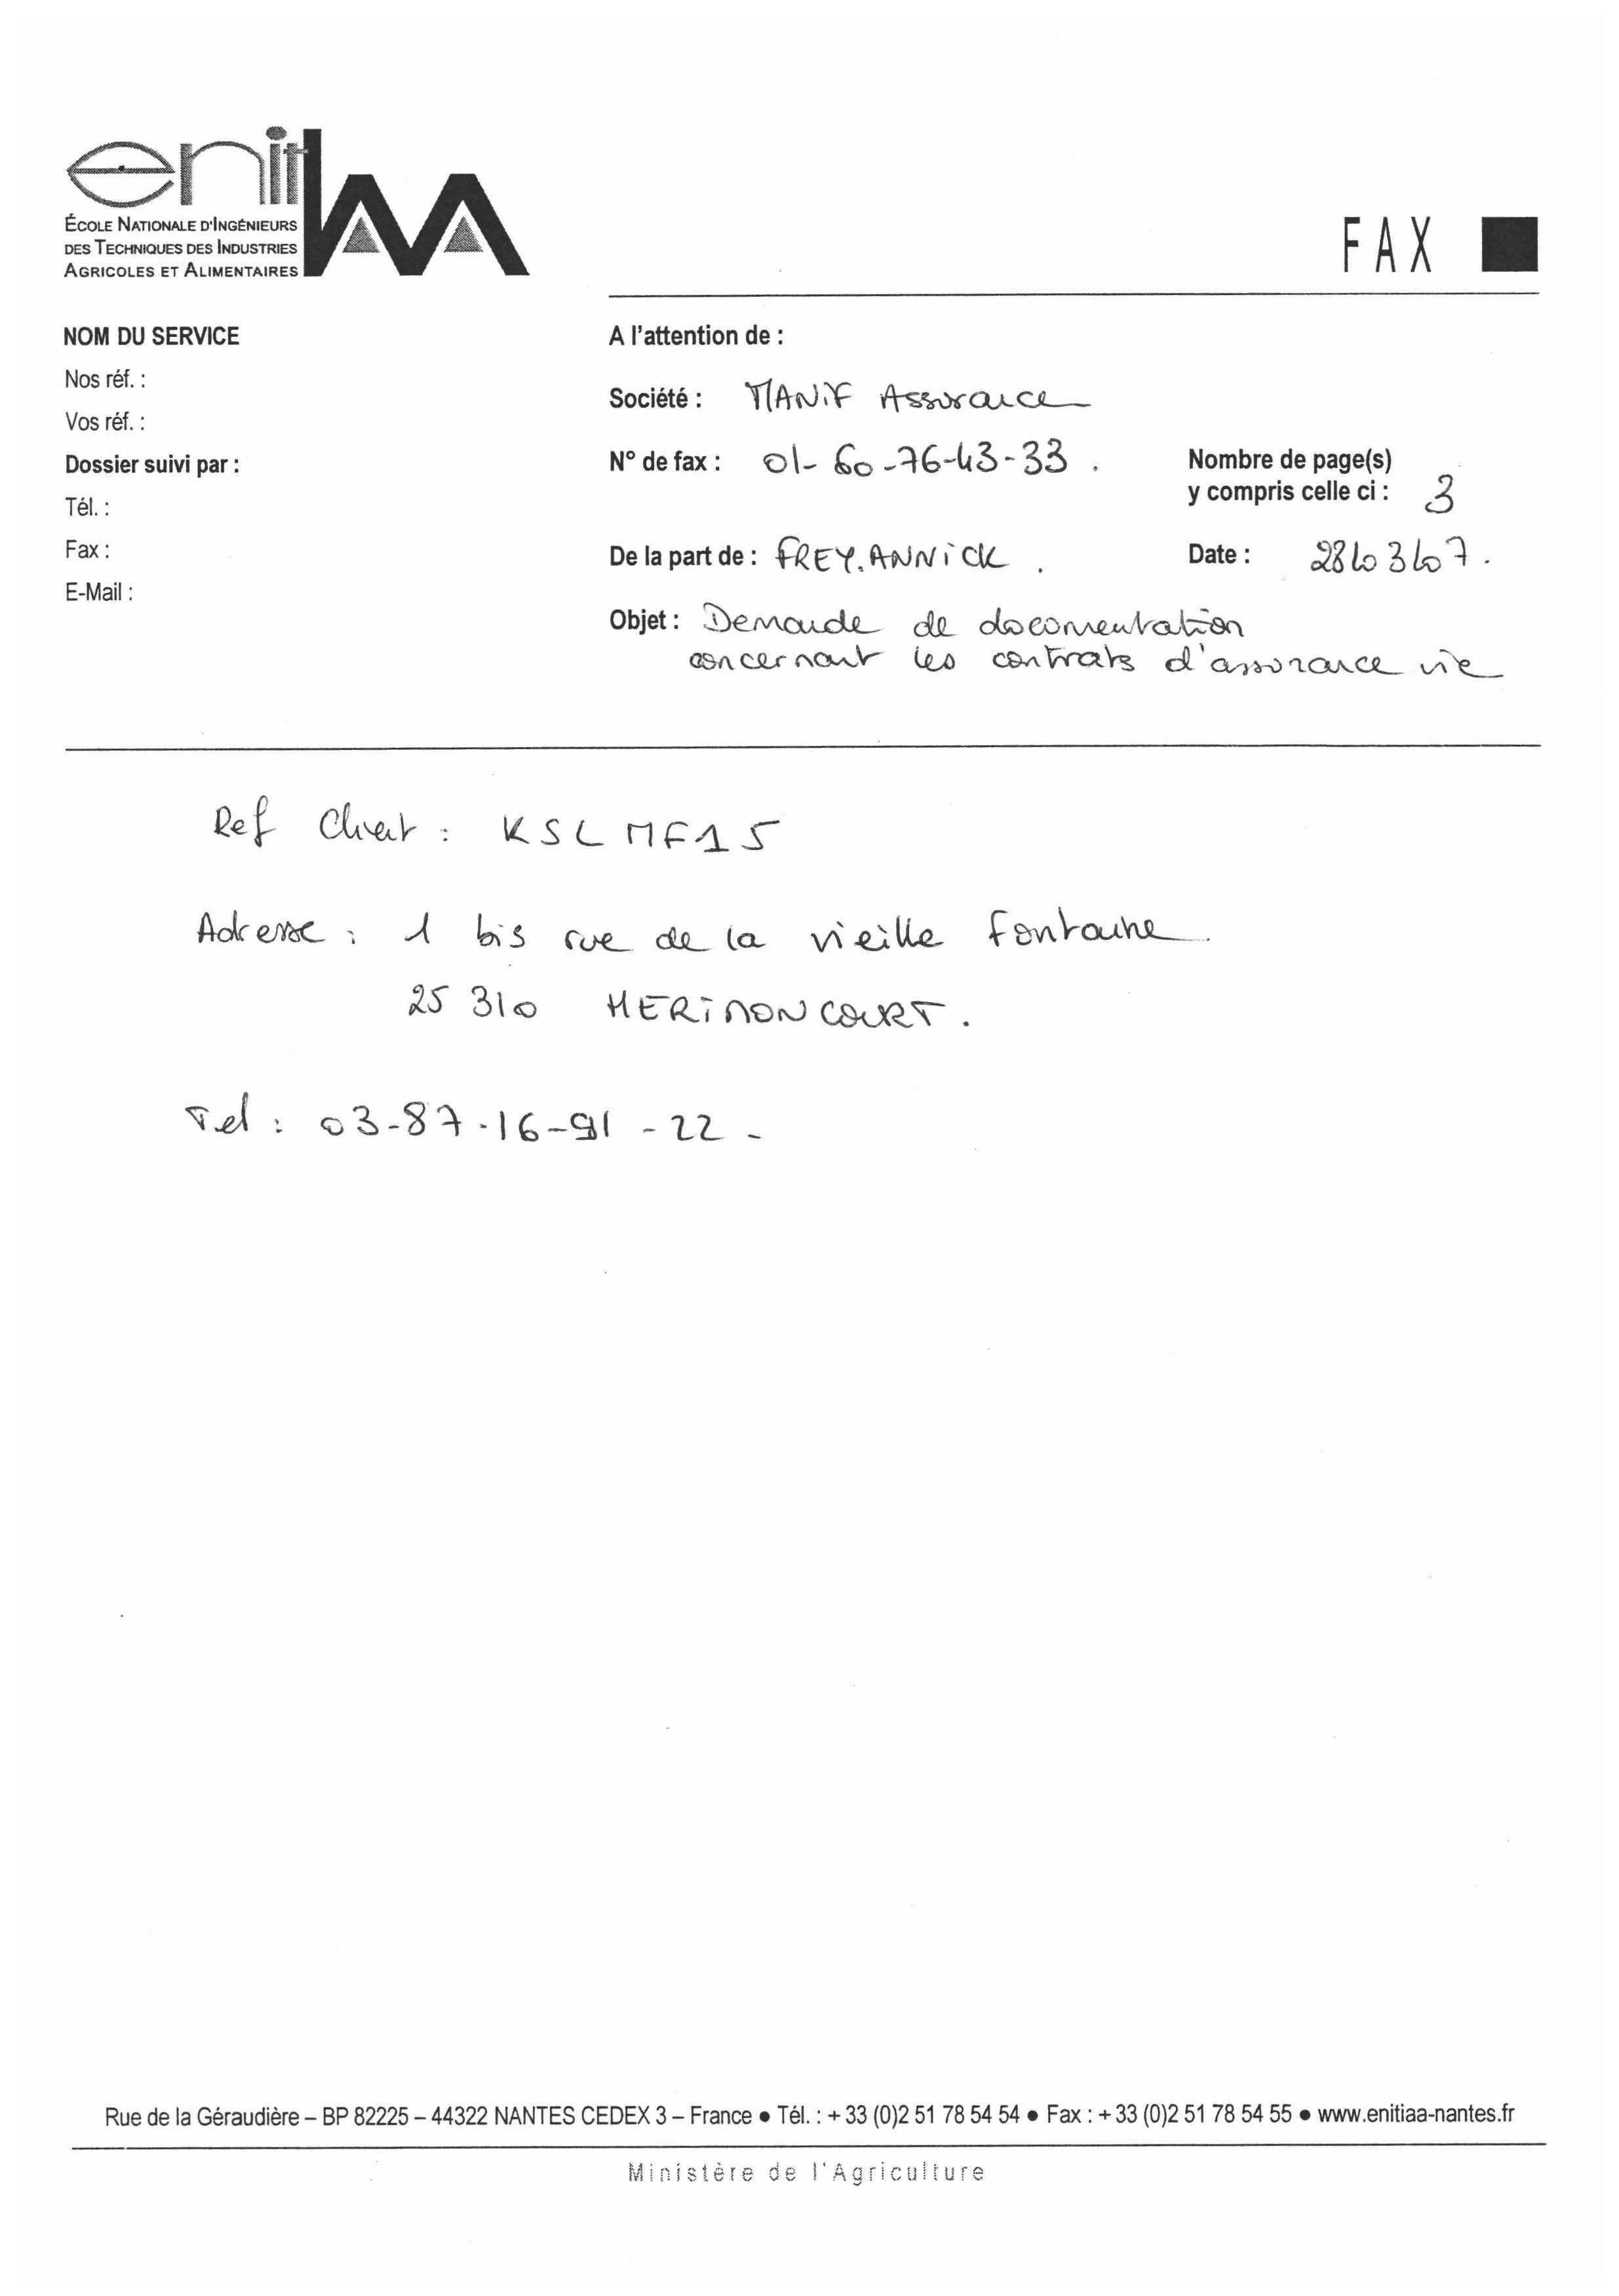 enitIAA
ÉCOLE NATIONALE D'INGÉNIEURS
DES TECHNIQUES DES INDUSTRIES
AGRICOLES ET ALIMENTAIRES
FAX
NOM DU SERVICE
Nos réf. :
Vos réf. :
Dossier suivi par :
Tél. :
Fax :
E-Mail :
A l'attention de :
Société : MANIF Assurance
N° de fax : 01-60-76-43-33.
Nombre de page(s)
y compris celle ci : 3
De la part de : FREY.ANNICK.
Date : 28/03/07.
Objet : Demande de documentation
concernant les contrats d'assurance vie
Ref Client : KSLMF15
Adresse : 1 bis rue de la vieille fontaine
25 310 HERIMONCOURT.
Tel : 03-87-16-91-22-
Rue de la Géraudière – BP 82225 – 44322 NANTES CEDEX 3 – France ● Tél. : + 33 (0)2 51 78 54 54 ● Fax : + 33 (0)2 51 78 54 55 ● www.enitiaa-nantes.fr
Ministère de l'Agriculture